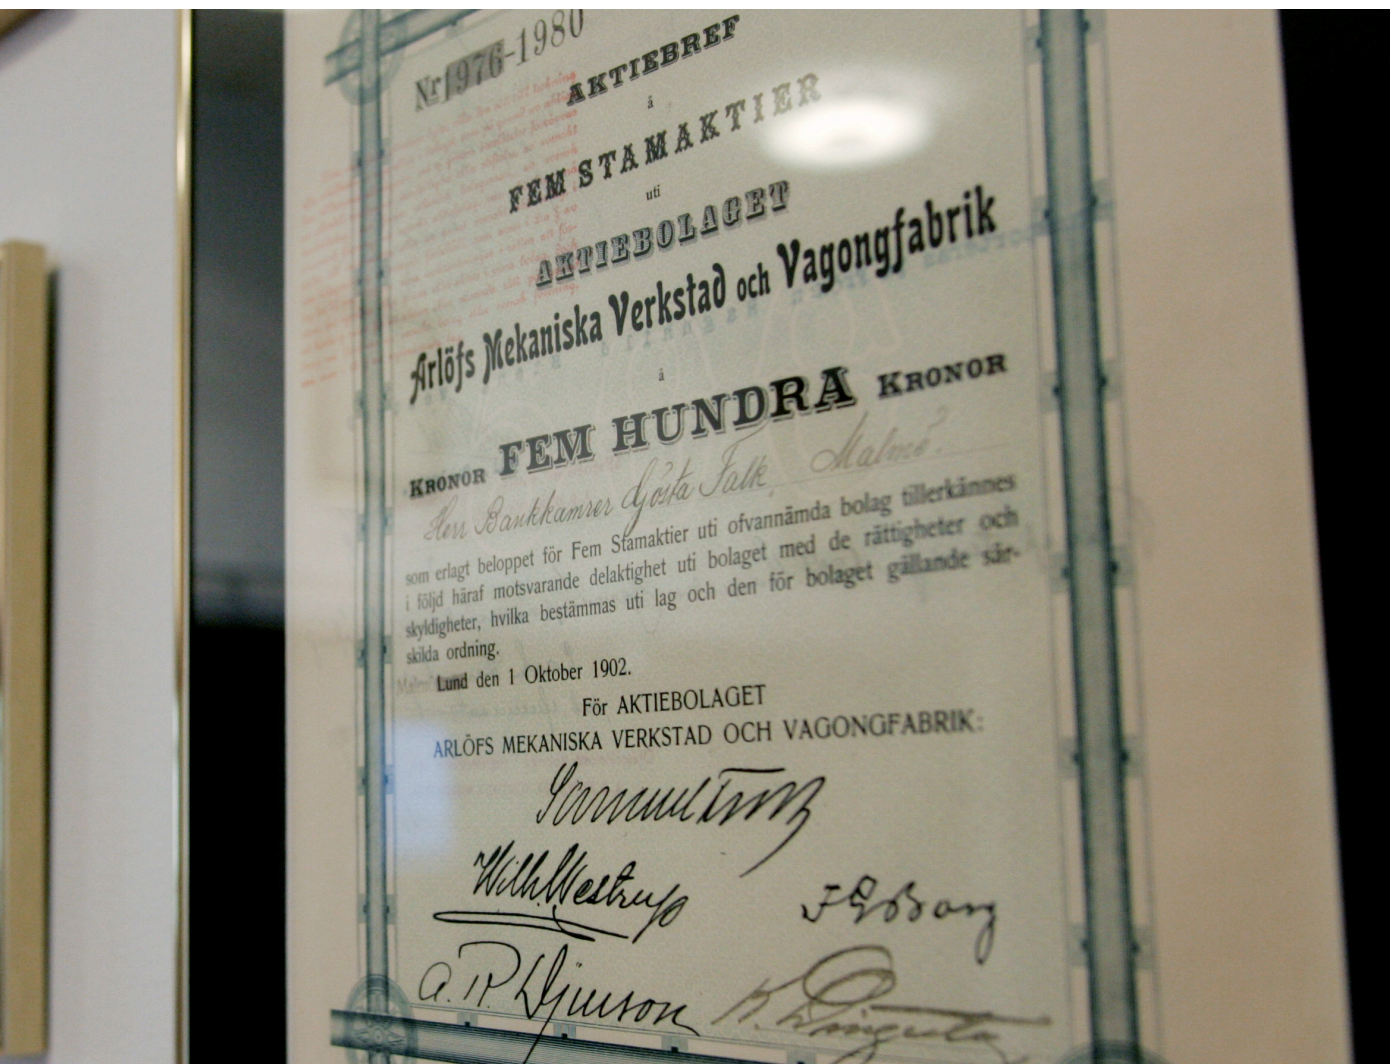 Nr 1976-1980
AKTIEBREF
à
FEM STAMAKTIER
uti
AKTIEBOLAGET
Arlöfs Mekaniska Verkstad och Vagongfabrik
à
KRONOR FEM HUNDRA KRONOR
Herr Bankkamrer Gösta Falk, Malmö.
som erlagt beloppet för Fem Stamaktier uti ofvannämda bolag tillerkännes
i följd häraf motsvarande delaktighet uti bolaget med de rättigheter och
skyldigheter, hvilka bestämmas uti lag och den för bolaget gällande sär-
skilda ordning.
Lund den 1 Oktober 1902.
För AKTIEBOLAGET
ARLÖFS MEKANISKA VERKSTAD OCH VAGONGFABRIK:
Wilh. Westrup